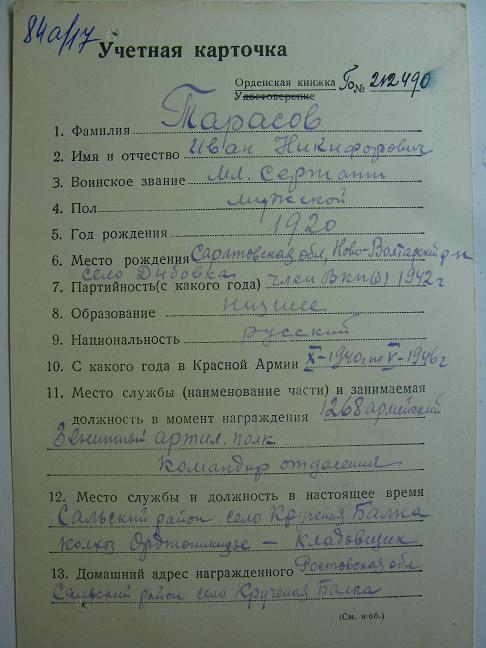 84а/17
Учетная карточка
Орденская книжка
Удостоверение Го№ 212490
1. Фамилия Тарасов
2. Имя и отчество Иван Никифорович
3. Воинское звание мл. сержант
4. Пол мужской
5. Год рождения 1920
6. Место рождения Саратовская обл, Ново- р-н
село Дибовка
7. Партийность(с какого года) член ВКП(б) 1942 г
8. Образование низшее
9. Национальность русский
10. С какого года в Красной Армии X-1940, по V-1946 г
11. Место службы (наименование части) и занимаемая
должность в момент награждения 1268 армейский
Зенитный артил. полк
командир отделения
12. Место службы и должность в настоящее время
Сальский район село Крученая Балка
колхоз Орджоникидзе — кладовщик
13. Домашний адрес награжденного Ростовская обл
Сальский район село Крученая Балка
(См. н/об.)